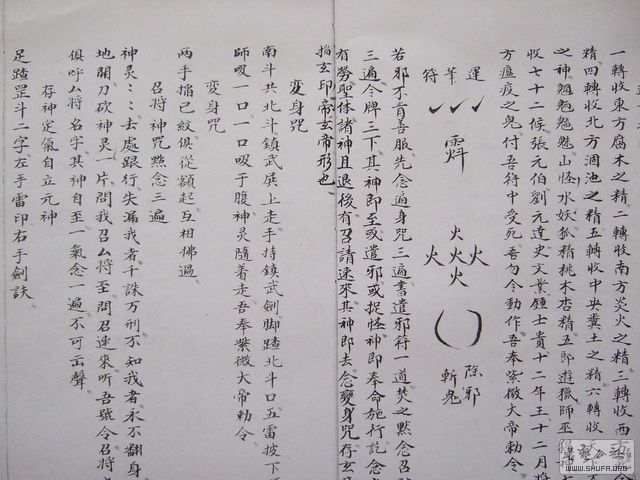 一轉收東方腐木之精二轉收南方炎火之精三轉收西方
精四轉收北方涸池之精五轉收中央糞土之精六轉收
之神魍魎魑魅山怪水妖狐精桃木杏精五郎遊獵師巫
收七十二候張元伯劉元達史文業鍾士貴十二年王十二月將
方瘟疫之鬼付吾符中受死吾勿令動作吾奉紫微大帝勅令
運筆符
火火火火火
除邪
斬鬼
若邪不肯善服先念遍身咒三遍書遣邪符一道焚之黙念召
三遍令牌三下其神即至或遣邪或捉怪神即奉命施行訖念
有勞聖体諸神且退後有召請速來其神即去念變身咒存玄
掐玄印帝玄帝形也
變身咒
南斗共北斗鎮武展上走手持鎮武劍脚踏北斗口五雷披下
師吸一口一口吸于腹神灵隨着走吾奉紫微大帝勅令
變身咒
兩手掐己紋俱從額起互相拂過
召將神咒黙念三遍
神灵去處跟行失漏我者千誅万刑不知我者永不翻身
地開刀砍神灵一片問我召厶將至問召速來听吾號令召將
俱呼厶將名字其神自至一氣念一遍不可出聲
存神定氣自立元神
足踏罡斗二字左手雷印右手劍訣
WWW.SHUFA.ORG